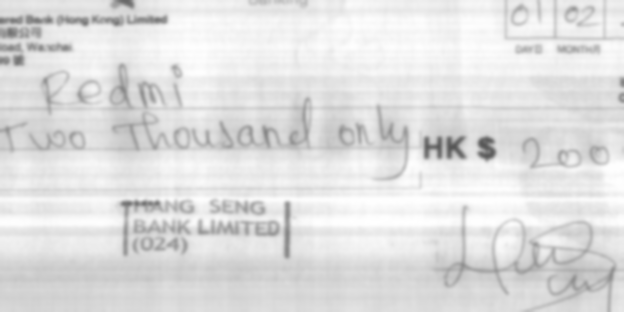 01 02
ered Bank (Hong Kong) Limited
限公司
Road, Wanchai
DAY日 MONTH月
Redmi
Two Thousand only HK $ 2000
HANG SENG
BANK LIMITED
(024)